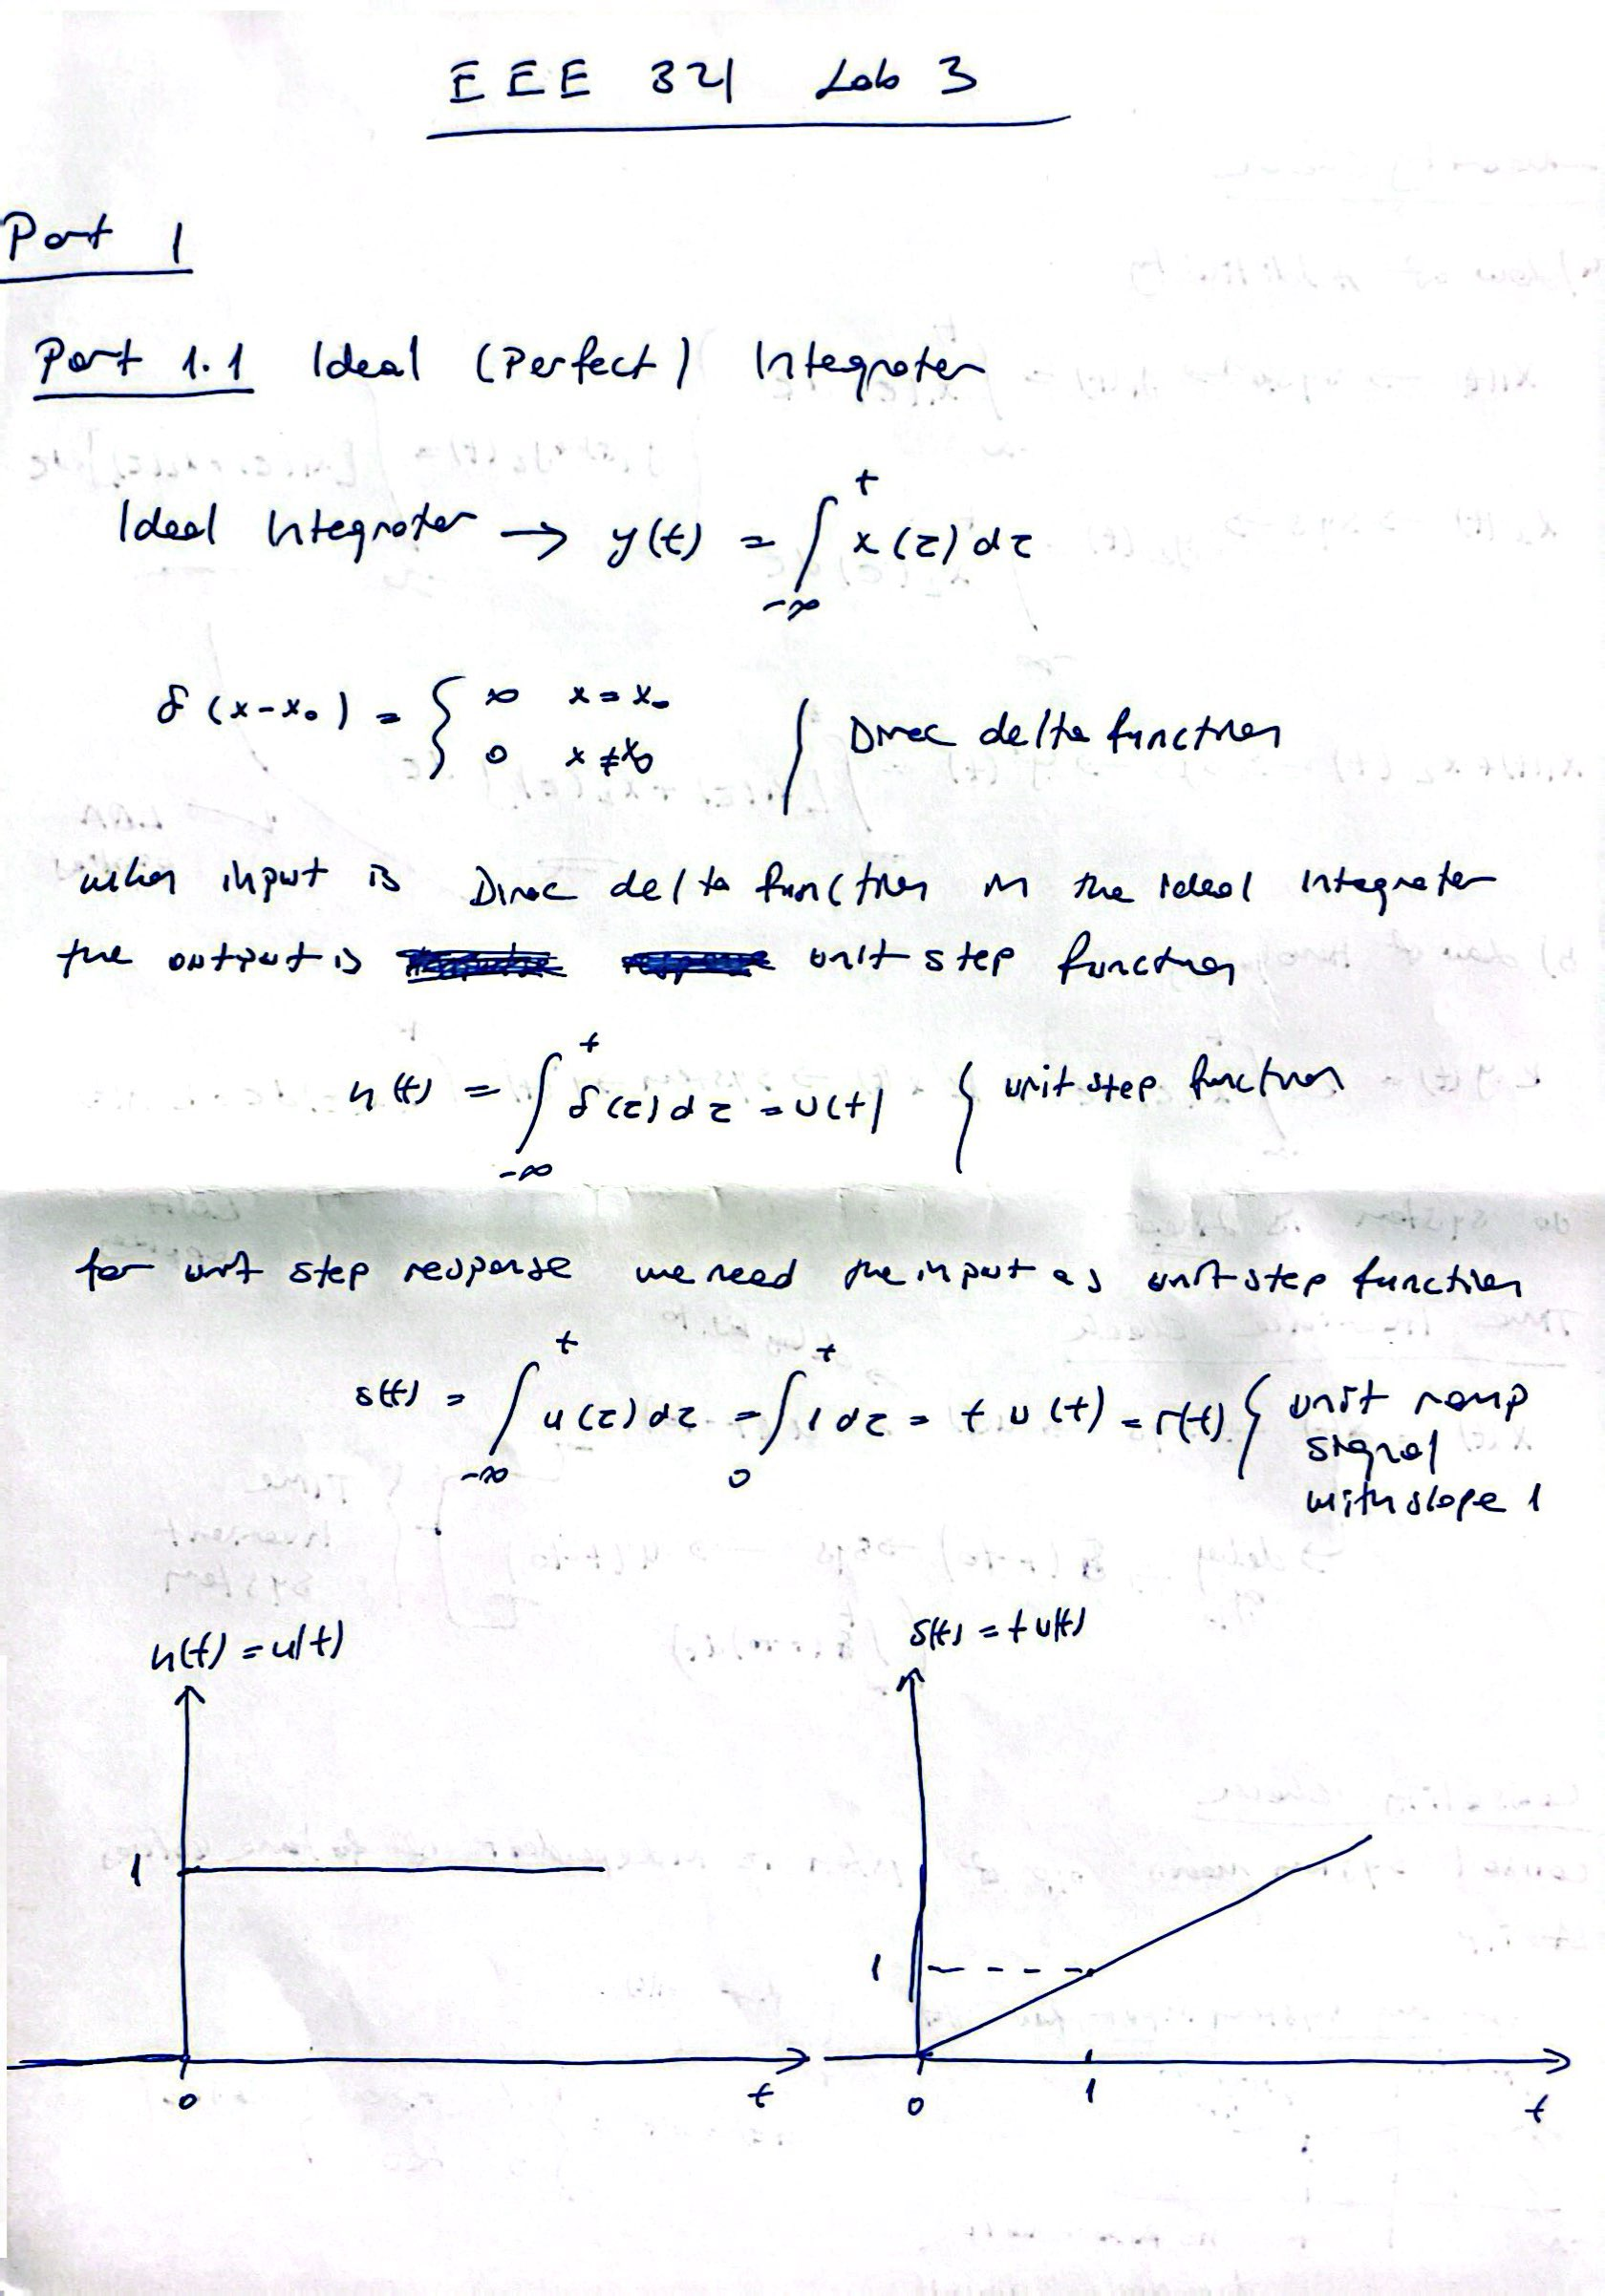 EEE 321 Lab 3
Part 1
Part 1.1 Ideal (Perfect) Integrator
Ideal Integrator → y(t) = ∫_{-∞}^{t} x(τ) dτ
δ(x-x₀) = { ∞ x = x₀
0 x ≠ x₀ } Dirac delta function
when input is Dirac delta function in the ideal integrator
the output is unit step function
h(t) = ∫_{-∞}^{t} δ(τ) dτ = u(t) } unit step function
for unit step response we need the input as unit step function
s(t) = ∫_{-∞}^{t} u(τ) dτ = ∫_{0}^{t} 1 dτ = t u(t) = r(t) { unit ramp
signal
with slope 1
h(t) = u(t)
s(t) = t u(t)
1
1
0
t
0
1
t